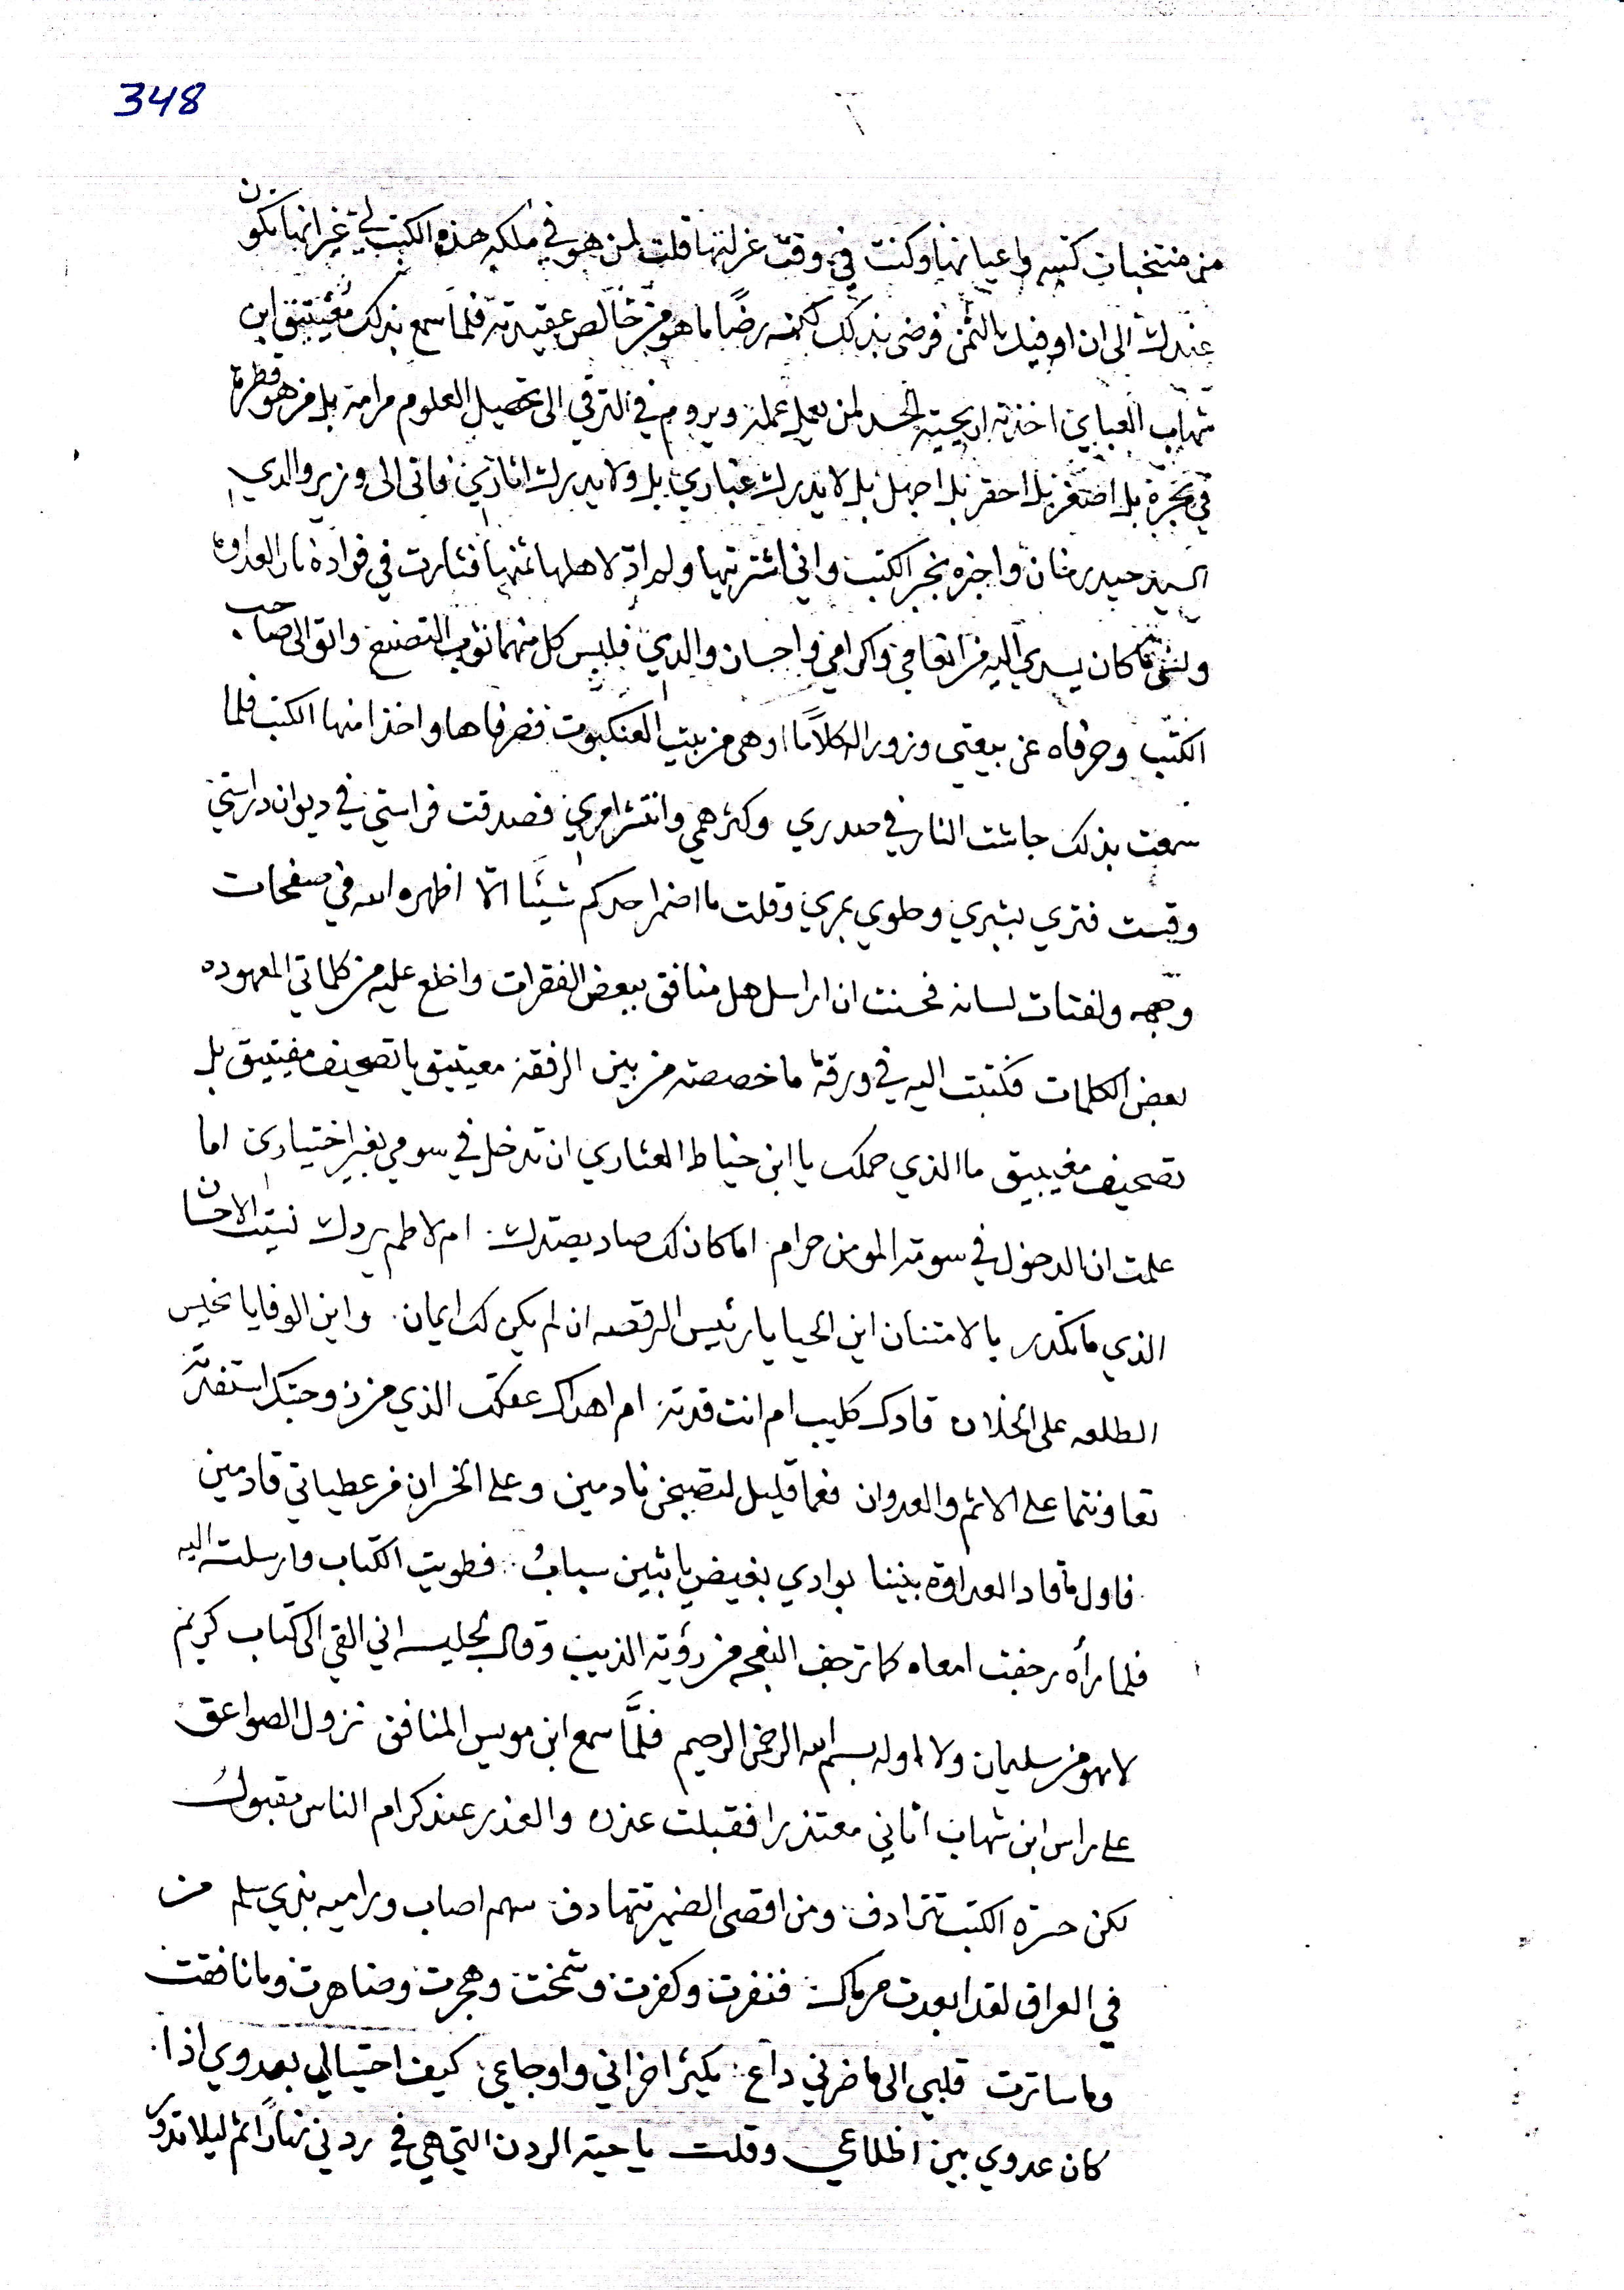 348
من منتخبات كتبه واعيانها وكنت في وقت عزلتها قلت لمن هو في ملكه هذه الكتب لي غير انها تكون
عندك الى ان اوفيك بالثمن فرضي بذلك لكنه رضًا ما هو من خالص عقيدته فلما سمع بذلك مغيتيق ابن
شهاب العبايي اخذته اريحية الحسد لمن يعمل عمله ويروم في الترقي الى تحصيل العلوم مرامه بل من هو قطرة
في بحره بل اصغر بل احقر بل اجهل بل لا يدرك غباري بل ولا يدرك اثاري فاتى الى وزير والدي
السيد حيدر خان واخبره بخبر الكتب واني اشتريتها ولم اؤد لاهلها ثمنها فثارت في فواده نار العداوة
ونسي ما كان يسدي اليه من انعامي واكرامي واحسان والدي فلبس كل منهما ثوب التصنع واتوا الى صاحب
الكتب وصرفاه عن بيعتي وزورا له كلامًا اوهى من بيت العنكبوت فصرفاها واخذا منها الكتب فلما
سمعت بذلك جاشت النار في صدري وكثر همي وانتشر امري فصدقت فراستي في ديوان دراستي
وقست فتري بشبري وحلوي بمري وقلت ما اضمر احدكم شيئًا الّا اظهره الله في صفحات
وجهه ولفتات لسانه فحسنت ان اراسل هل منافق ببعض الفقرات واخلع عليه من كلماتي المعهوده
بعض الكلمات فكتبت اليه في ورقة ما خصصته من بين الرفقة معيتيق يا تصحيف مفيتيق بل
تصحيف مغيبيق ما الذي حملك يا ابن خياط العثاري ان تدخل في سومي بغير اختياري اما
علمت ان الدخول في سومة المومن حرام اما كان لك صاد يصدك ام لا طم يردك نسيت الاحسان
الذي ما تكدر بالامتنان اين الحيا يا رئيس الرقصه ان لم يكن لك ايمان واين الوفا يا نحيس
الطلعه على الخلان قادك كليب ام انت قدته ام اهداك عفكك الذي من زوجتك استفدته
تعاونتما على الاثم والعدوان فعما قليل لتصبحن نادمين وعلى الخسران من عطياتي قادمين
فاول ما قاد العداوة بيننا بوادي بغيض يا بثين سبابُ فطويت الكتاب وارسلته اليه
فلما رأه رجفت امعاه كما ترجف النعجه من رؤية الذيب وقال لجليسه اني القي الي كتاب كريم
لا هو من سليمان ولا اوله بسم الله الرحمن الرحيم فلمَّا سمع ابن مويس المنافق نزول الصواعق
على راس ابن شهاب اتاني معتذرا فقبلت عذره والعذر عند كرام الناس مقبولُ
لكن حسرة الكتب تترادف ومن اقصى الضمير تتهادف سهم اصاب وراميه بذي سلم من
في العراق لقد ابعدت مرماك فنفرت وكفرت وشمخت وهجرت وضاهرت وما نافقت
وما ساترت قلبي الى ما ضرني داع يكثر احزاني واوجاعي كيف احتيالي بعدوي اذا
كان عدوي بين اظلاعي وقلت يا حية الردن التي هي في ردني نهارًا ثم ليلا